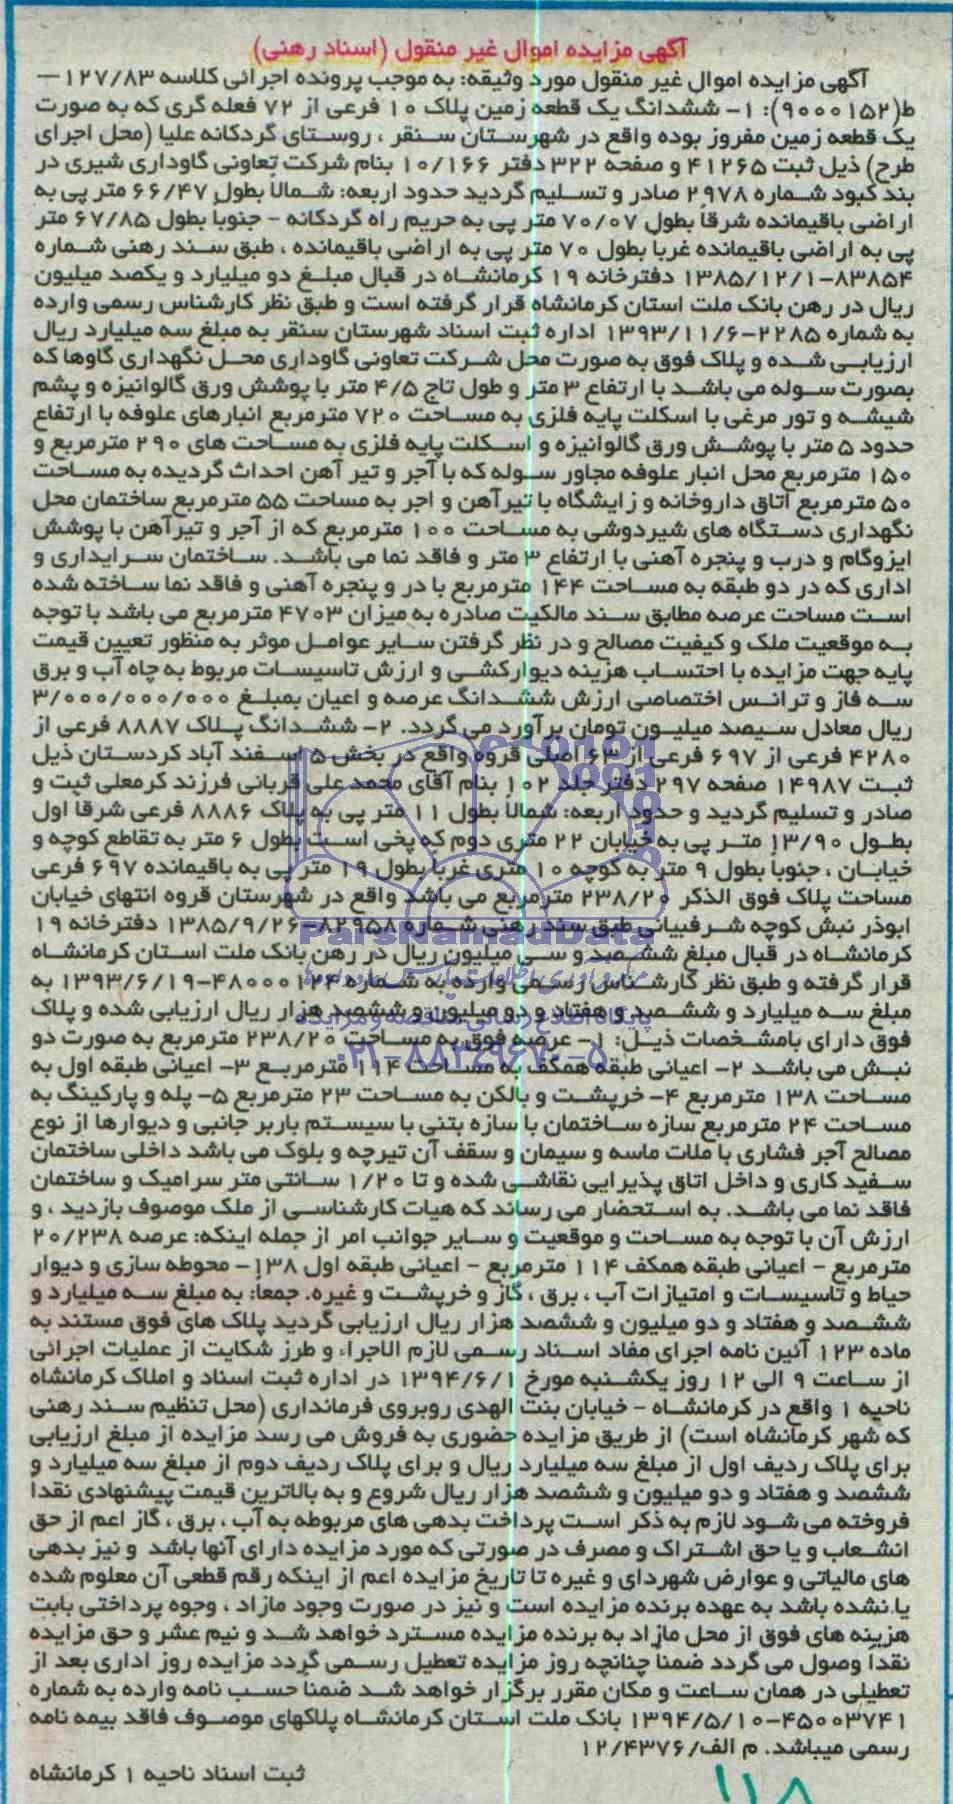 آگهی مزایده اموال غیر منقول (اسناد رهنی)
آگهی مزایده اموال غیر منقول مورد وثیقه: به موجب پرونده اجرائی کلاسه ۱۲۷/۸۳—
ط(۹۰۰۰۱۵۲): ۱- ششدانگ یک قطعه زمین پلاک ۱۰ فرعی از ۷۲ فعله گری که به صورت
یک قطعه زمین مفروز بوده واقع در شهرستان سنقر ، روستای گردکانه علیا (محل اجرای
طرح) ذیل ثبت ۴۱۲۶۵ و صفحه ۳۲۲ دفتر ۱۰/۱۶۶ بنام شرکت تعاونی گاوداری شیری در
بند کبود شماره ۲۹۷۸ صادر و تسلیم گردید حدود اربعه: شمالاً بطول ۶۶/۴۷ متر پی به
اراضی باقیمانده شرقاً بطول ۷۰/۰۷ متر پی به حریم راه گردکانه - جنوباً بطول ۶۷/۸۵ متر
پی به اراضی باقیمانده غربا بطول ۷۰ متر پی به اراضی باقیمانده ، طبق سند رهنی شماره
۸۳۸۵۴-۱۳۸۵/۱۲/۱ دفترخانه ۱۹ کرمانشاه در قبال مبلغ دو میلیارد و یکصد میلیون
ریال در رهن بانک ملت استان کرمانشاه قرار گرفته است و طبق نظر کارشناس رسمی وارده
به شماره ۲۲۸۵-۱۳۹۳/۱۱/۶ اداره ثبت اسناد شهرستان سنقر به مبلغ سه میلیارد ریال
ارزیابی شده و پلاک فوق به صورت محل شرکت تعاونی گاوداری محل نگهداری گاوها که
بصورت سوله می باشد با ارتفاع ۳ متر و طول تاج ۴/۵ متر با پوشش ورق گالوانیزه و پشم
شیشه و تور مرغی با اسکلت پایه فلزی به مساحت ۷۲۰ مترمربع انبارهای علوفه با ارتفاع
حدود ۵ متر با پوشش ورق گالوانیزه و اسکلت پایه فلزی به مساحت های ۲۹۰ مترمربع و
۱۵۰ مترمربع محل انبار علوفه مجاور سوله که با آجر و تیر آهن احداث گردیده به مساحت
۵۰ مترمربع اتاق داروخانه و زایشگاه با تیرآهن و اجر به مساحت ۵۵ مترمربع ساختمان محل
نگهداری دستگاه های شیردوشی به مساحت ۱۰۰ مترمربع که از آجر و تیرآهن با پوشش
ایزوگام و درب و پنجره آهنی با ارتفاع ۳ متر و فاقد نما می باشد. ساختمان سرایداری و
اداری که در دو طبقه به مساحت ۱۴۴ مترمربع با در و پنجره آهنی و فاقد نما ساخته شده
است مساحت عرصه مطابق سند مالکیت صادره به میزان ۴۷۰۳ مترمربع می باشد با توجه
به موقعیت ملک و کیفیت مصالح و در نظر گرفتن سایر عوامل موثر به منظور تعیین قیمت
پایه جهت مزایده با احتساب هزینه دیوارکشی و ارزش تاسیسات مربوط به چاه آب و برق
سه فاز و ترانس اختصاصی ارزش ششدانگ عرصه و اعیان بمبلغ ۳/۰۰۰/۰۰۰/۰۰۰
ریال معادل سیصد میلیون تومان برآورد می گردد. ۲- ششدانگ پلاک ۸۸۸۷ فرعی از
۴۲۸۰ فرعی از ۶۹۷ فرعی از ۶۳ اصلی قروه واقع در بخش ۵ اسفند آباد کردستان ذیل
ثبت ۱۴۹۸۷ صفحه ۲۹۷ دفتر جلد ۱۰۲ بنام آقای محمد علی قربانی فرزند کرمعلی ثبت و
صادر و تسلیم گردید و حدود اربعه: شمالاً بطول ۱۱ متر پی به پلاک ۸۸۸۶ فرعی شرقا اول
بطول ۱۳/۹۰ متر پی به خیابان ۲۲ متری دوم که پخی است بطول ۶ متر به تقاطع کوچه و
خیابان ، جنوباً بطول ۹ متر به کوچه ۱۰ متری غرباً بطول ۱۹ متر پی به باقیمانده ۶۹۷ فرعی
مساحت پلاک فوق الذکر ۲۳۸/۲۰ مترمربع می باشد واقع در شهرستان قروه انتهای خیابان
ابوذر نبش کوچه شرفبیانی طبق سند رهنی شماره ۸۲۹۵۸-۱۳۸۵/۹/۲۶ دفترخانه ۱۹
کرمانشاه در قبال مبلغ ششصد و سی میلیون ریال در رهن بانک ملت استان کرمانشاه
قرار گرفته و طبق نظر کارشناس رسمی وارده به شماره ۴۸۰۰۰۱۲۴-۱۳۹۳/۶/۱۹ به
مبلغ سه میلیارد و ششصد و هفتاد و دو میلیون و ششصد هزار ریال ارزیابی شده و پلاک
فوق دارای بامشخصات ذیل: ۱- عرصه فوق به مساحت ۲۳۸/۲۰ مترمربع به صورت دو
نبش می باشد ۲- اعیانی طبقه همکف به مساحت ۱۱۴ مترمربع ۳- اعیانی طبقه اول به
مساحت ۱۳۸ مترمربع ۴- خرپشت و بالکن به مساحت ۲۳ مترمربع ۵- پله و پارکینگ به
مساحت ۲۴ مترمربع سازه ساختمان با سازه بتنی با سیستم باربر جانبی و دیوارها از نوع
مصالح آجر فشاری با ملات ماسه و سیمان و سقف آن تیرچه و بلوک می باشد داخلی ساختمان
سفید کاری و داخل اتاق پذیرایی نقاشی شده و تا ۱/۲۰ سانتی متر سرامیک و ساختمان
فاقد نما می باشد. به استحضار می رساند که هیات کارشناسی از ملک موصوف بازدید ، و
ارزش آن با توجه به مساحت و موقعیت و سایر جوانب امر از جمله اینکه: عرصه ۲۰/۲۳۸
مترمربع - اعیانی طبقه همکف ۱۱۴ مترمربع - اعیانی طبقه اول ۱۳۸- محوطه سازی و دیوار
حیاط و تاسیسات و امتیازات آب ، برق ، گاز و خرپشت و غیره. جمعا: به مبلغ سه میلیارد و
ششصد و هفتاد و دو میلیون و ششصد هزار ریال ارزیابی گردید پلاک های فوق مستند به
ماده ۱۲۳ آئین نامه اجرای مفاد اسناد رسمی لازم الاجراء و طرز شکایت از عملیات اجرائی
از ساعت ۹ الی ۱۲ روز یکشنبه مورخ ۱۳۹۴/۶/۱ در اداره ثبت اسناد و املاک کرمانشاه
ناحیه ۱ واقع در کرمانشاه - خیابان بنت الهدی روبروی فرمانداری (محل تنظیم سند رهنی
که شهر کرمانشاه است) از طریق مزایده حضوری به فروش می رسد مزایده از مبلغ ارزیابی
برای پلاک ردیف اول از مبلغ سه میلیارد ریال و برای پلاک ردیف دوم از مبلغ سه میلیارد و
ششصد و هفتاد و دو میلیون و ششصد هزار ریال شروع و به بالاترین قیمت پیشنهادی نقدا
فروخته می شود لازم به ذکر است پرداخت بدهی های مربوطه به آب ، برق ، گاز اعم از حق
انشعاب و یا حق اشتراک و مصرف در صورتی که مورد مزایده دارای آنها باشد و نیز بدهی
های مالیاتی و عوارض شهردای و غیره تا تاریخ مزایده اعم از اینکه رقم قطعی آن معلوم شده
یا نشده باشد به عهده برنده مزایده است و نیز در صورت وجود مازاد ، وجوه پرداختی بابت
هزینه های فوق از محل مازاد به برنده مزایده مسترد خواهد شد و نیم عشر و حق مزایده
نقداً وصول می گردد ضمناً چنانچه روز مزایده تعطیل رسمی گردد مزایده روز اداری بعد از
تعطیلی در همان ساعت و مکان مقرر برگزار خواهد شد ضمناً حسب نامه وارده به شماره
۴۵۰۰۳۷۴۱-۱۳۹۴/۵/۱۰ بانک ملت استان کرمانشاه پلاکهای موصوف فاقد بیمه نامه
رسمی میباشد. م الف/۱۲/۴۳۷۶
ثبت اسناد ناحیه ۱ کرمانشاه
۱۱۸
ParsNamadData
پایگاه اطلاع رسانی مناقصه و مزایده
۰۲۱-۸۸۳۴۹۶۷۰-۵